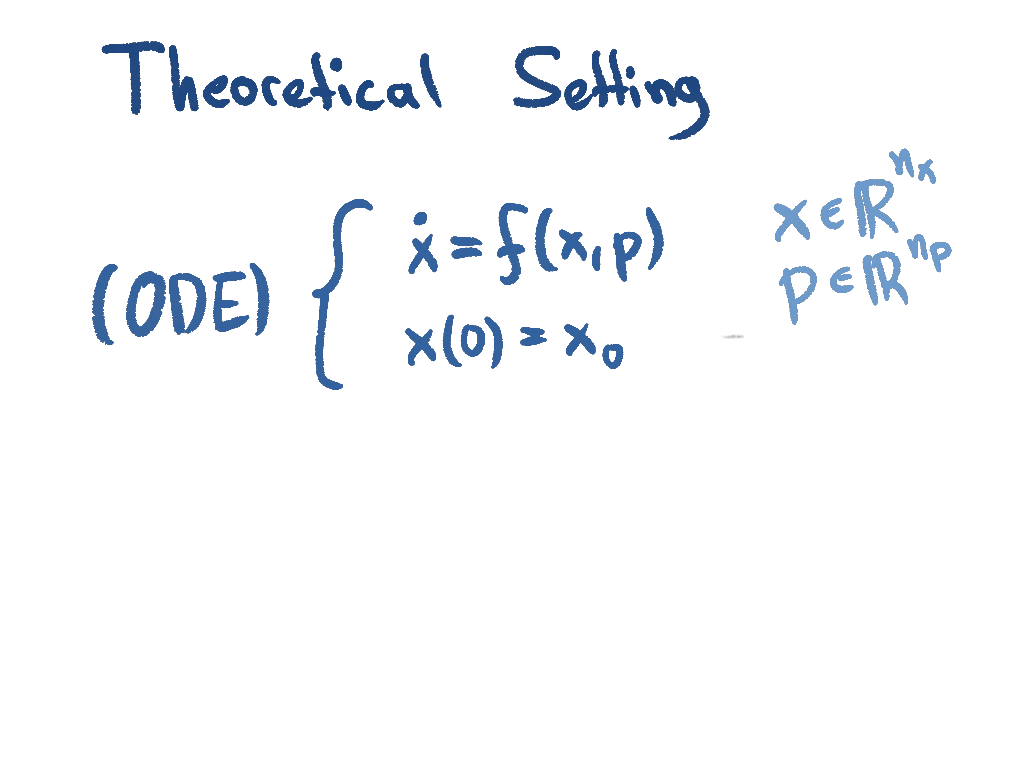 Theoretical Setting
(ODE) { ẋ = f(x, p)
x(0) = x₀
x ∈ ℝⁿˣ
p ∈ ℝⁿᵖ